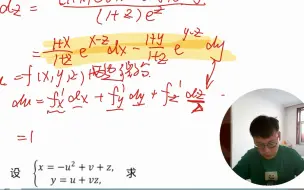 dz =
(1+z)e^z
= \frac{1+x}{1+z} e^{x-z} dx - \frac{1+y}{1+z} e^{y-z} dy
u = f(x,y,z)
du = f_x' dx + f_y' dy + f_z' dz
=
设 { x = -u^2 + v + z, 求
y = u + vz,